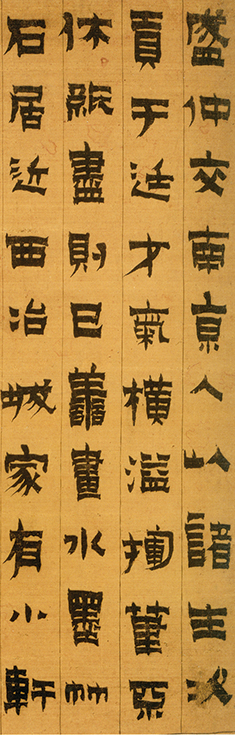 盛仲交南京人以諸生次
貢于廷才氣橫溢
休紙盡則已善畫水墨竹
石居近西冶城家有小軒